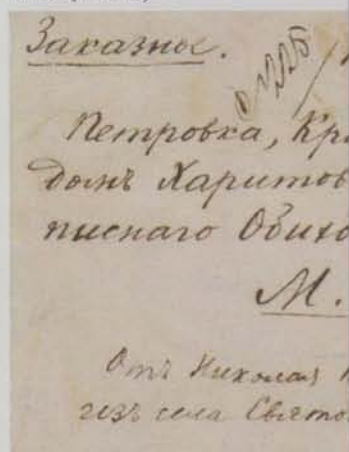 Заказное.
Петровка, Кр
домъ Харитов
писнаго Обихо
М.
Отъ Николая
изъ села Свято